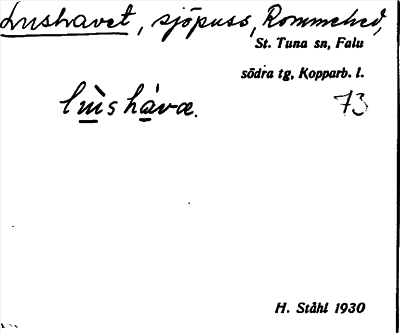 Lushavet, sjöpuss, Rommehed,
St. Tuna sn, Falu
södra tg, Kopparb. l.
lùshávæ.
73
H. Ståhl 1930